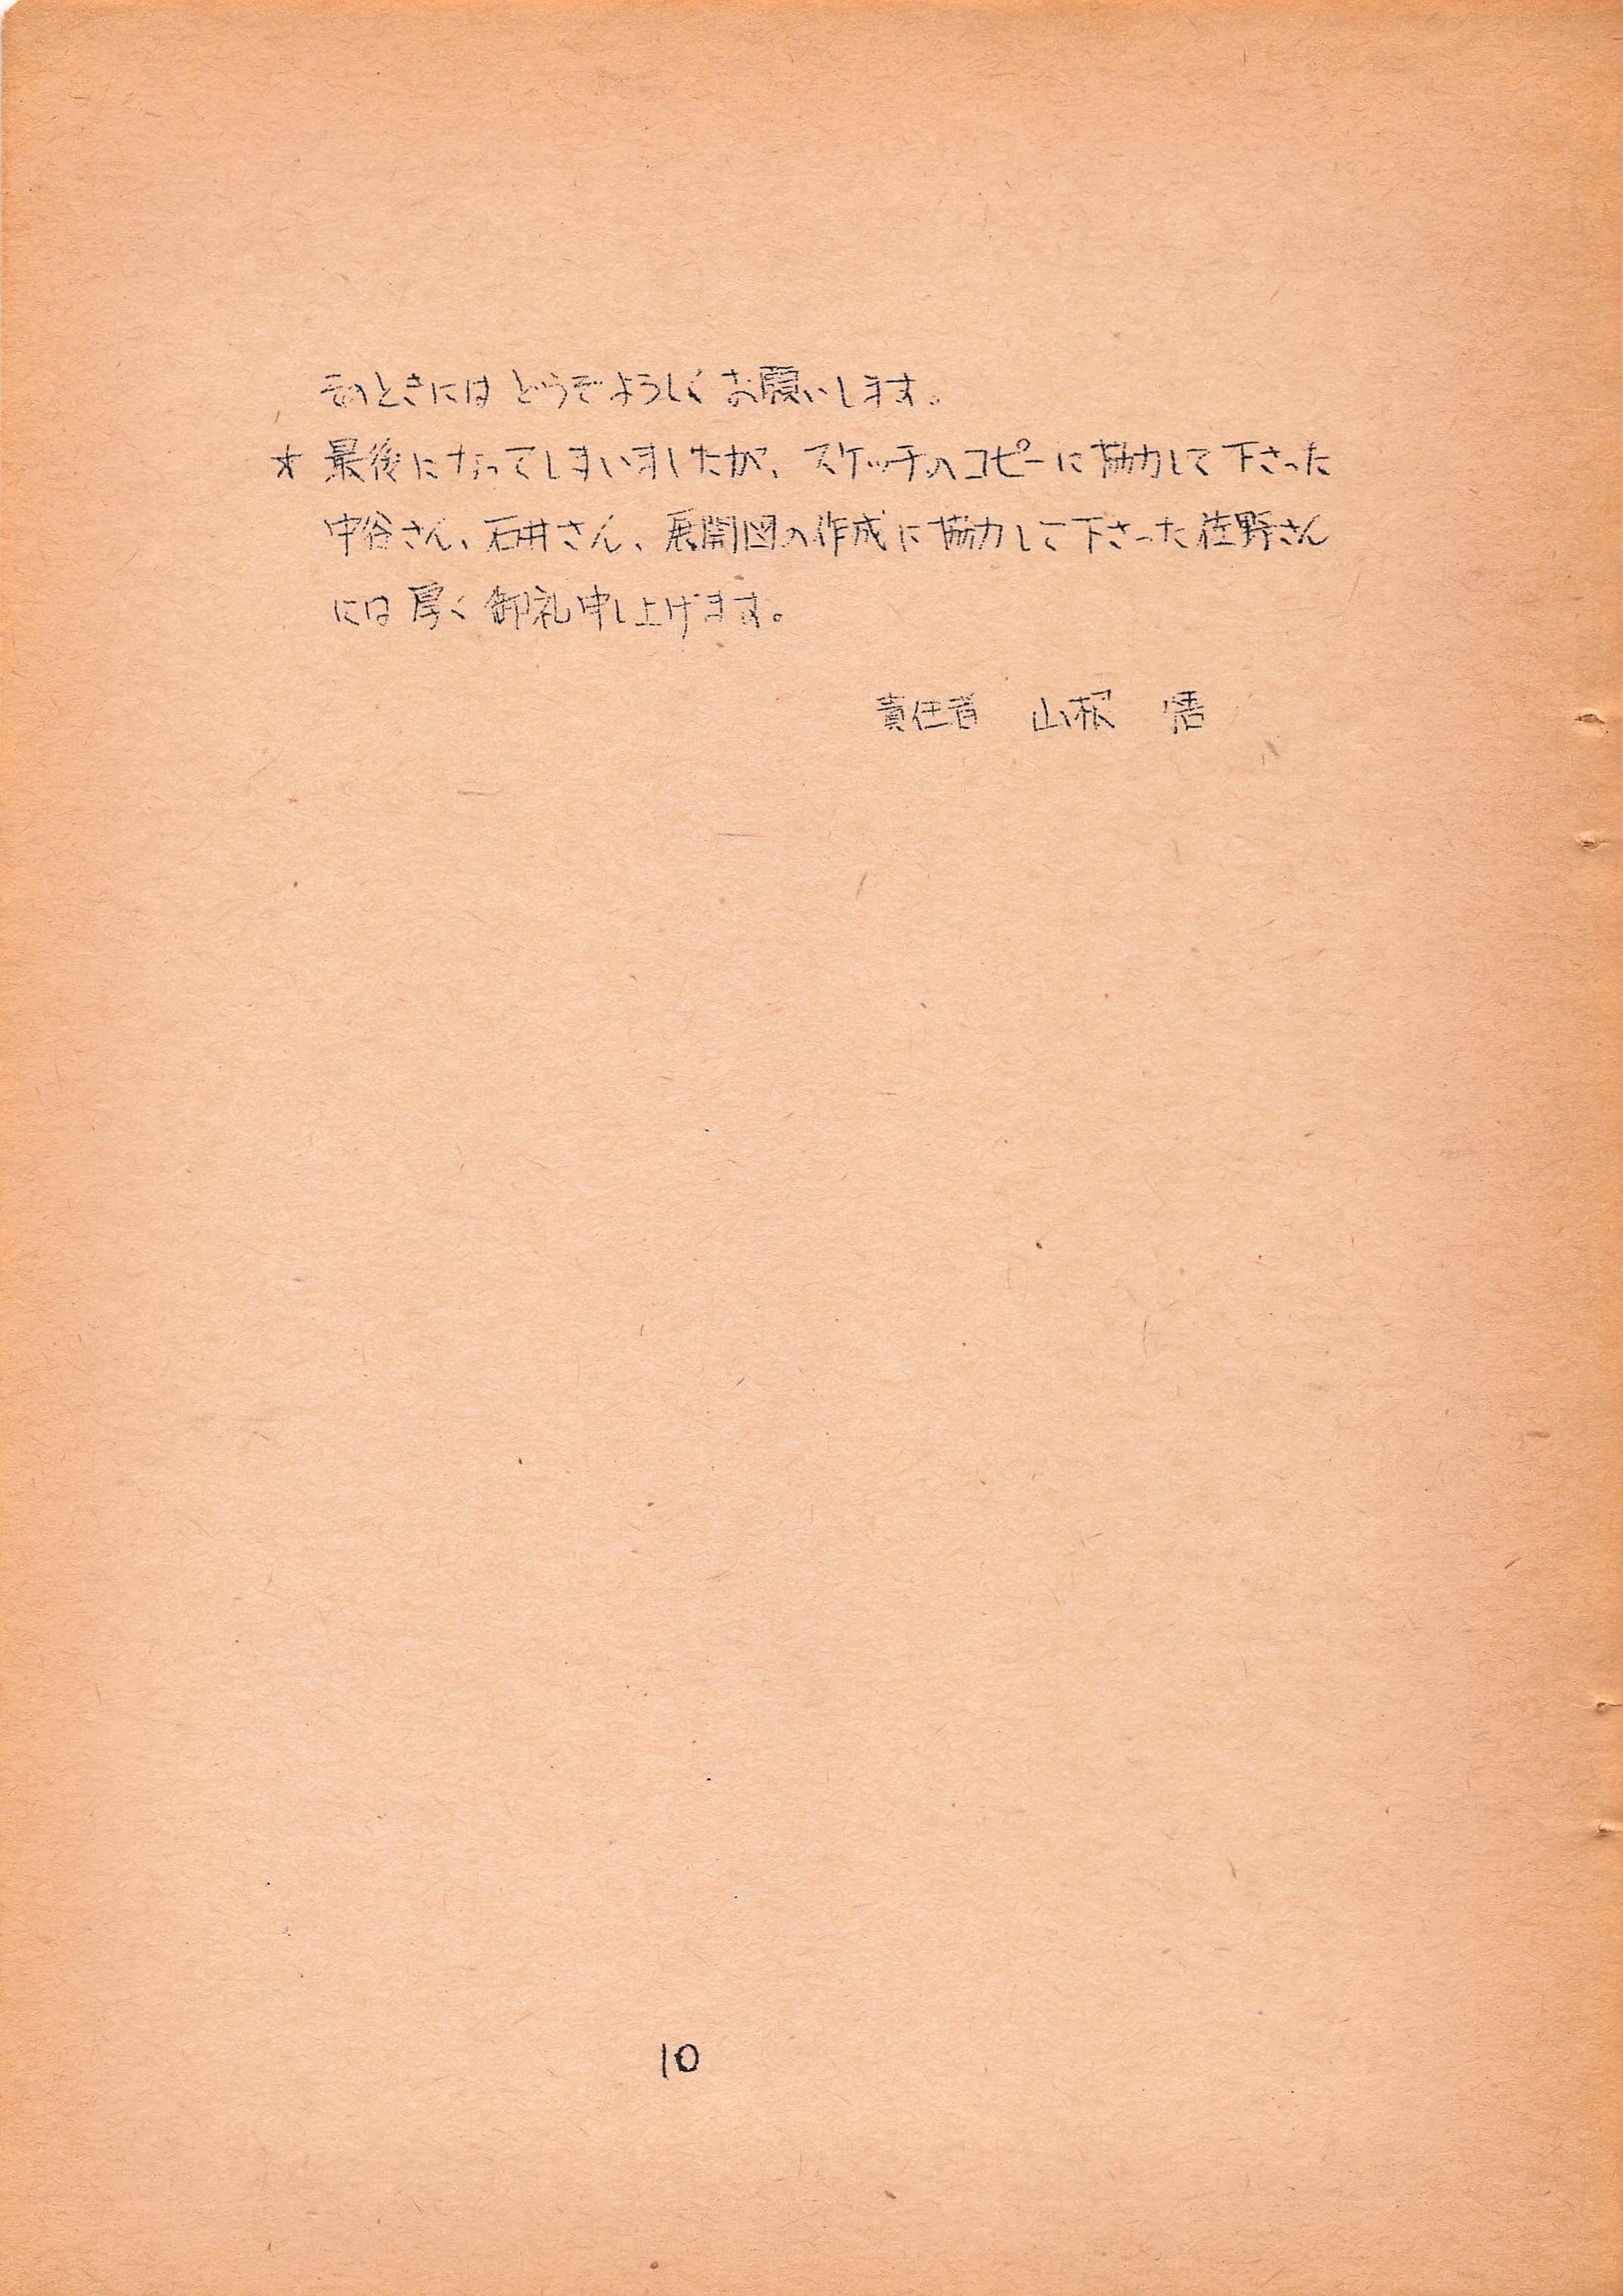 そのときには どうぞよろしく お願いします。
★ 最後になってしまいましたが、スケッチのコピーに協力して下さった
中谷さん、石井さん、展開図の作成に協力して下さった佐野さん
には厚く御礼申し上げます。
責任者 山根 悟
10